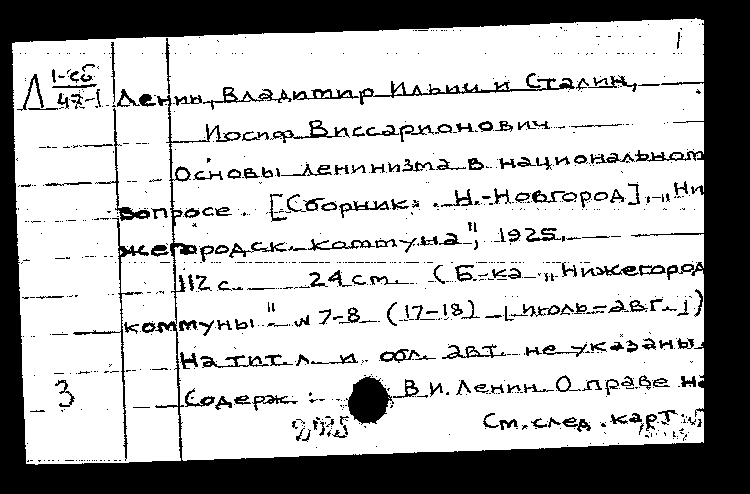 1
Л 1-сб
47-1
Ленин, Владимир Ильич и Сталин,
Иосиф Виссарионович
Основы ленинизма в национальном
вопросе. [Сборник. Н.-Новгород], „Ни
жегородск. коммуна", 1925.
112 с. 24 см. (Б-ка „Нижегород
коммуны" № 7-8 (17-18) июль-авг.)
На тит. л. и обл. авт. не указаны.
3 Содерж.: В.И. Ленин. О праве на
См. след. карт